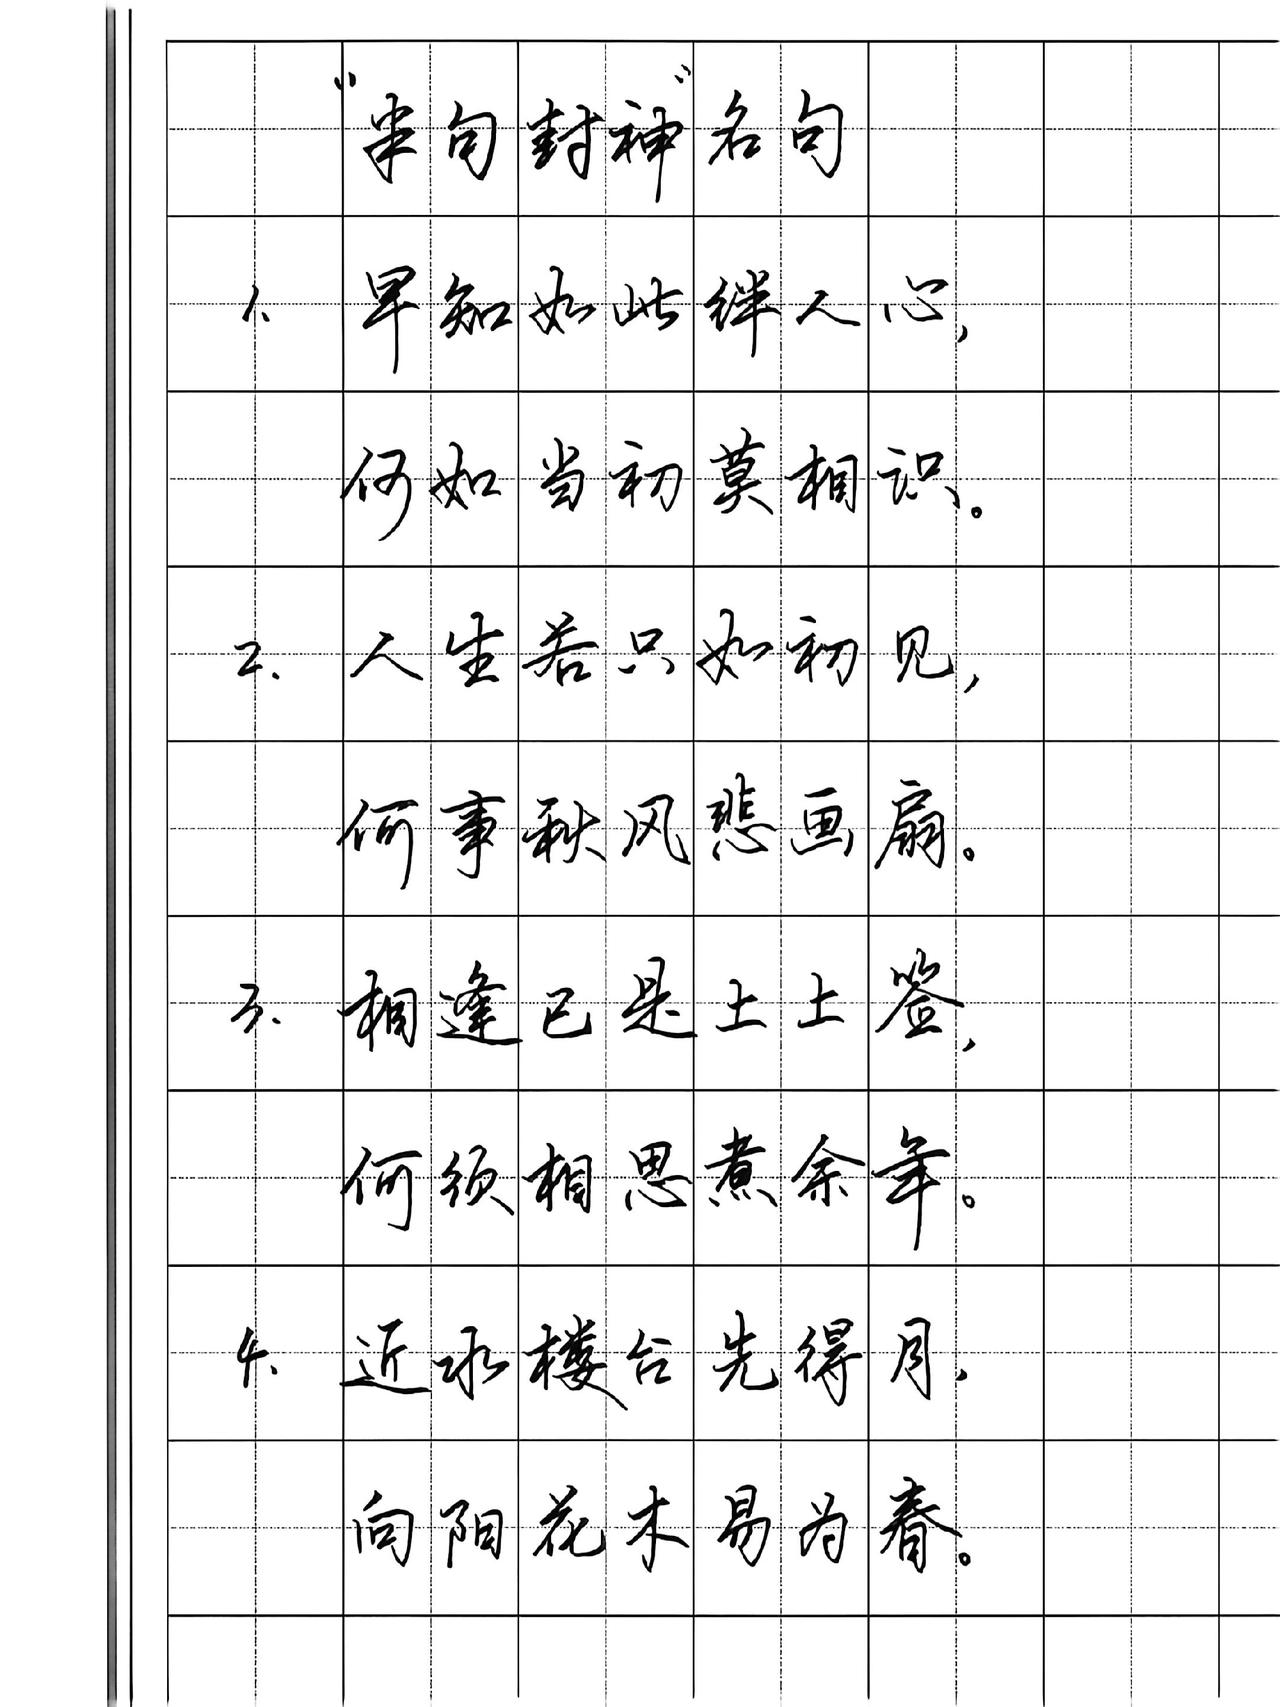 “半句封神”名句
1、早知如此绊人心，
何如当初莫相识。
2、人生若只如初见，
何事秋风悲画扇。
3、相逢已是上上签，
何须相思煮余年。
4、近水楼台先得月，
向阳花木易为春。